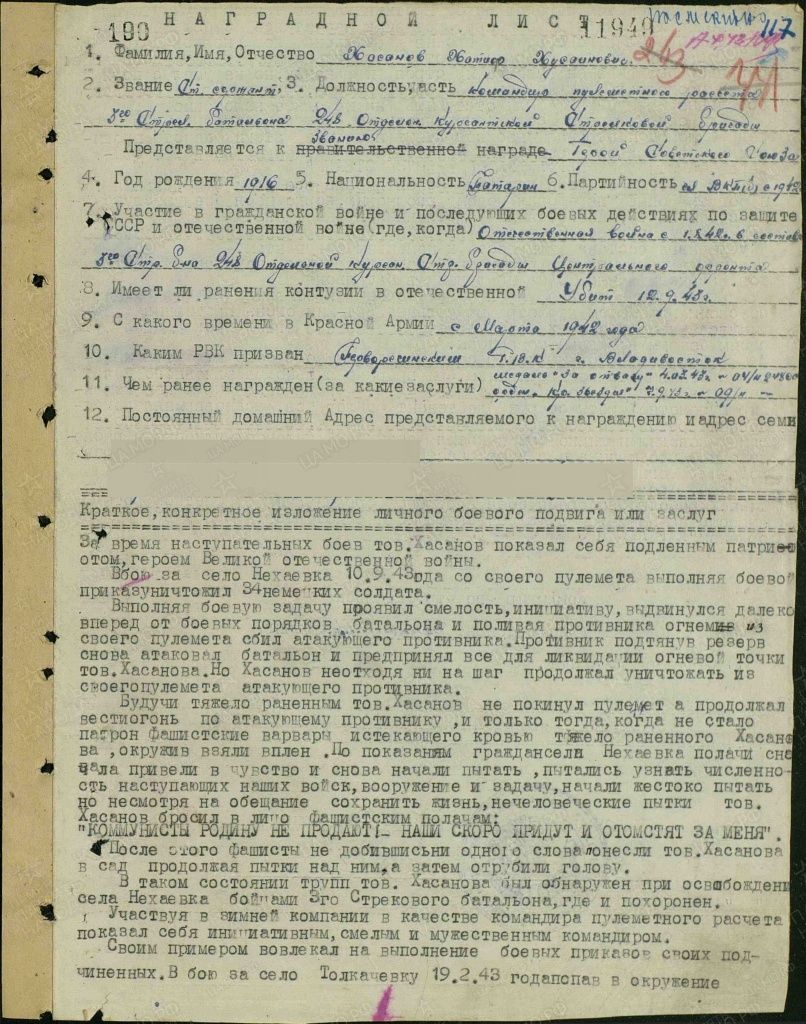 НАГРАДНОЙ ЛИСТ
190 11949 117
263
1. Фамилия,Имя,Отчество Хасанов Хусаинович
2. Звание Ст. сержант, 3. Должность,часть командир пулеметного расчета
3го Стрел. Батальона 248 Отдельн. Курсантской Стрелковой Бригады
званию
Представляется к правительственной награде Герой Советского Союза
4. Год рождения 1916 5. Национальность Татарин 6. Партийность ВКП(б) с 1942
7. Участие в гражданской войне и последующих боевых действиях по защите
СССР и отечественной войне(где,когда) Отечественная война с 1.X.42г. в составе
3го Стр. Б-на 248 Отдельной Курсан. Стр. Бригады Центрального фронта
8. Имеет ли ранения контузии в отечественной Убит 12.9.43г.
9. С какого времени в Красной Армии с Марта 1942 года
10. Каким РВК призван г. Владивосток
11. Чем ранее награжден(за какие заслуги) медаль "За отвагу" орден "Кр. звезда"
12. Постоянный домашний Адрес представляемого к награждению и адрес семи
Краткое,конкретное изложение личного боевого подвига или заслуг
За время наступательных боев тов.Хасанов показал себя подленным патрие
отом,героем Великой отечественной войны.
Вбою за село Нехаевка 10.9.43ода со своего пулемета выполняя боевой
приказуничтожил 34немецких солдата.
Выполняя боевую задачу проявил смелость,инициативу,выдвинулся далеко
вперед от боевых порядков батальона и поливая противника огнем из
своего пулемета сбил атакующего противника.Противник подтянув резерв
снова атаковал батальон и предпринял все для ликвидации огневой точки
тов.Хасанова.Но Хасанов неотходя ни на шаг продолжал уничтожать из
своегопулемета атакующего противника.
Будучи тяжело раненным тов.Хасанов не покинул пулемет а продолжал
вестиогонь по атакующему противнику ,и только тогда,когда не стало
патрон фашистские варвары истекающего кровью тяжело раненного Хасано
ва ,окружив взяли вплен .По показаням граждансела Нехаевка полачи сна
чала привели в чувство и снова начали пытать ,пытались узнать численно-
сть наступающих наших войск,вооружение и задачу,начали жестоко пытать
но несмотря на обещание сохранить жизнь,нечеловеческие пытки тов.
Хасанов бросил в лицо фашистским полачам:
"КОММУНИСТЫ РОДИНУ НЕ ПРОДАЮТ!- НАШИ СКОРО ПРИДУТ И ОТОМСТЯТ ЗА МЕНЯ".
После этого фашисты не добившисьни одного слова понесли тов.Хасанова
в сад продолжая пытки над ним,а затем отрубили голову.
В таком состоянии трупп тов. Хасанова был обнаружен при освобождени
села Нехаевка бойцами 3го Стрекового батальона,где и похоронен.
Участвуя в зимней компании в качестве командира пулеметного расчета
показал себя инициативным,смелым и мужественным командиром.
Своим примером вовлекал на выполнение боевых приказов своих под-
чиненных.В бою за село Толкачевку 19.2.43 годапопав в окружение